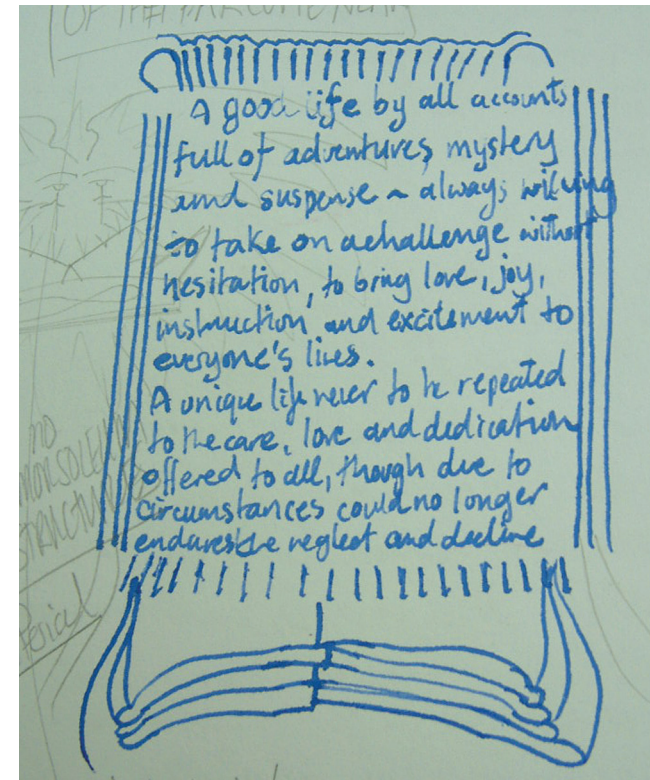 OF THE
A good life by all accounts
full of adventures, mystery
and suspense ~ always willing
to take on a challenge without
hesitation, to bring love, joy,
instruction and excitement to
everyone's lives.
A unique life never to be repeated
to the care, love and dedication
offered to all, though due to
circumstances could no longer
endure the neglect and decline
NO